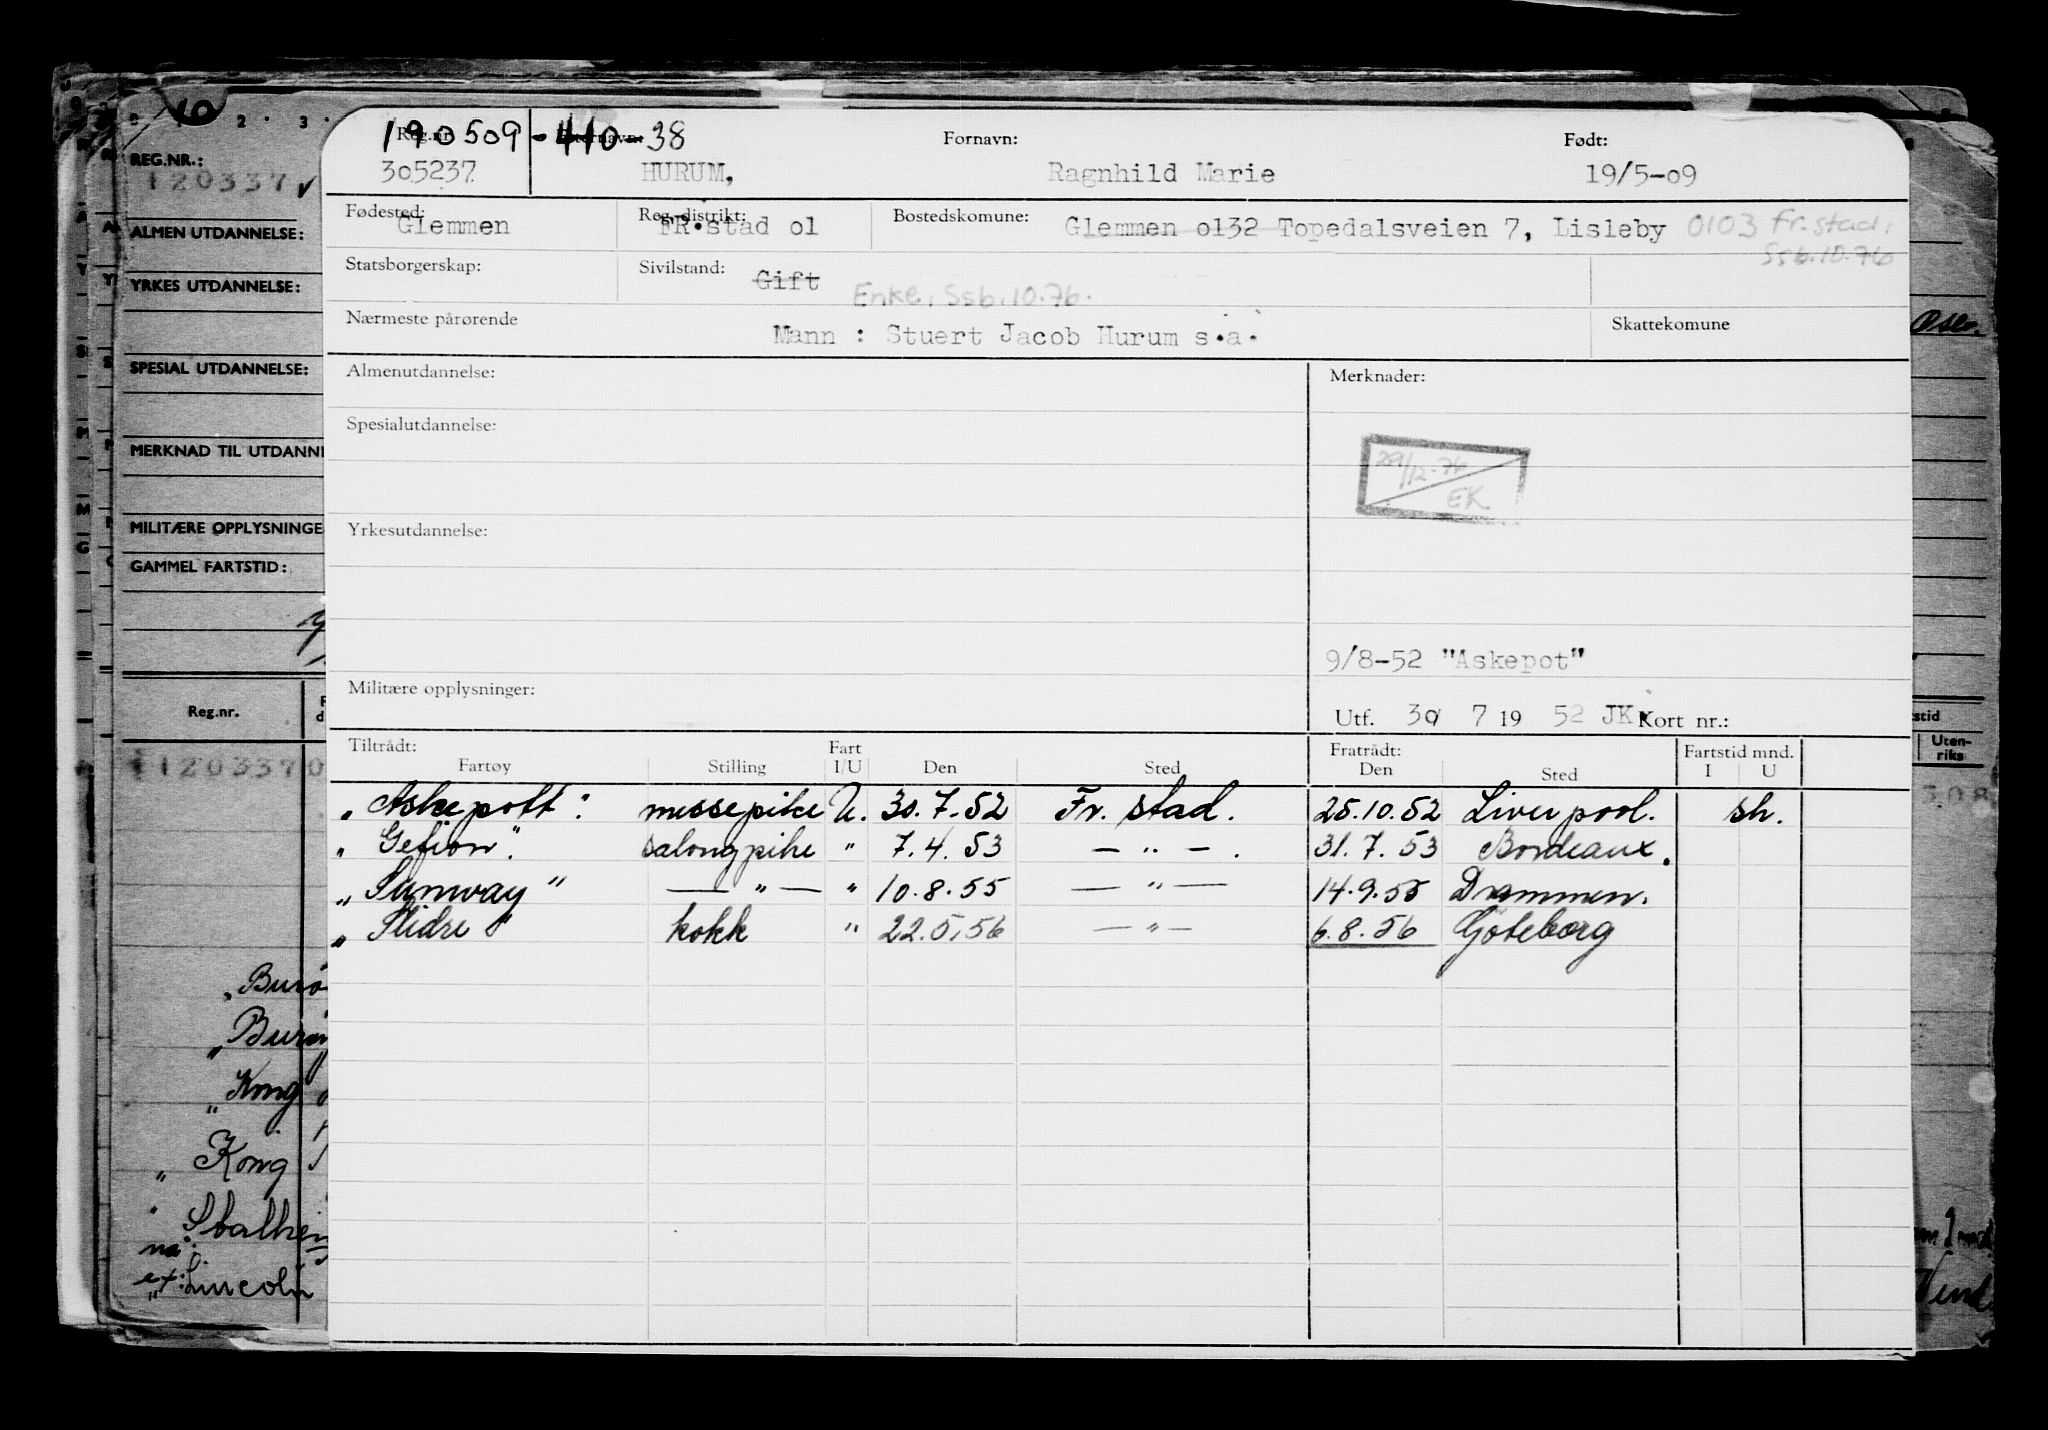 10
2 · 3 ·
REG.NR.:
120337
ALMEN UTDANNELSE:
YRKES UTDANNELSE:
SPESIAL UTDANNELSE:
MERKNAD TIL UTDANNE
MILITÆRE OPPLYSNINGE
GAMMEL FARTSTID:
Reg.nr.
1120337
Kong
Kong
Stalhei
ex: Lincoln
190509-410-38
Reg.nr. Etternavn: Fornavn: Født:
305237 HURUM, Ragnhild Marie 19/5-09
Fødested: Reg.distrikt: Bostedskomune:
Glemmen FR.stad ol Glemmen ol32 Topedalsveien 7, Lisleby 0103 Fr.stad,
Ssb.10.76
Statsborgerskap: Sivilstand: Gift
Enke, Ssb.10.76.
Nærmeste pårørende Skattekomune
Mann : Stuert Jacob Hurum s.a.
Almenutdannelse: Merknader:
Spesialutdannelse:
29/12-76
EK
Yrkesutdannelse:
9/8-52 "Askepot"
Militære opplysninger:
Utf. 30/ 7 19 52 JK. Kort nr.:
Tiltrådt: Fart Fratrådt: Fartstid mnd.
Fartøy Stilling I/U Den Sted Den Sted I U
"Askepott": messepike U. 30.7.52 Fr. stad. 25.10.52 Liverpool. sh.
"Gefion". salongpike " 7.4.53 — " — . 31.7.53 Bordeaux.
"Sunway" — " — " 10.8.55 — " — 14.9.55 Drammen.
"Slidre" kokk " 22.5.56 — " — 6.8.56 Göteborg
Oslo.
stid
Uten-
riks
308